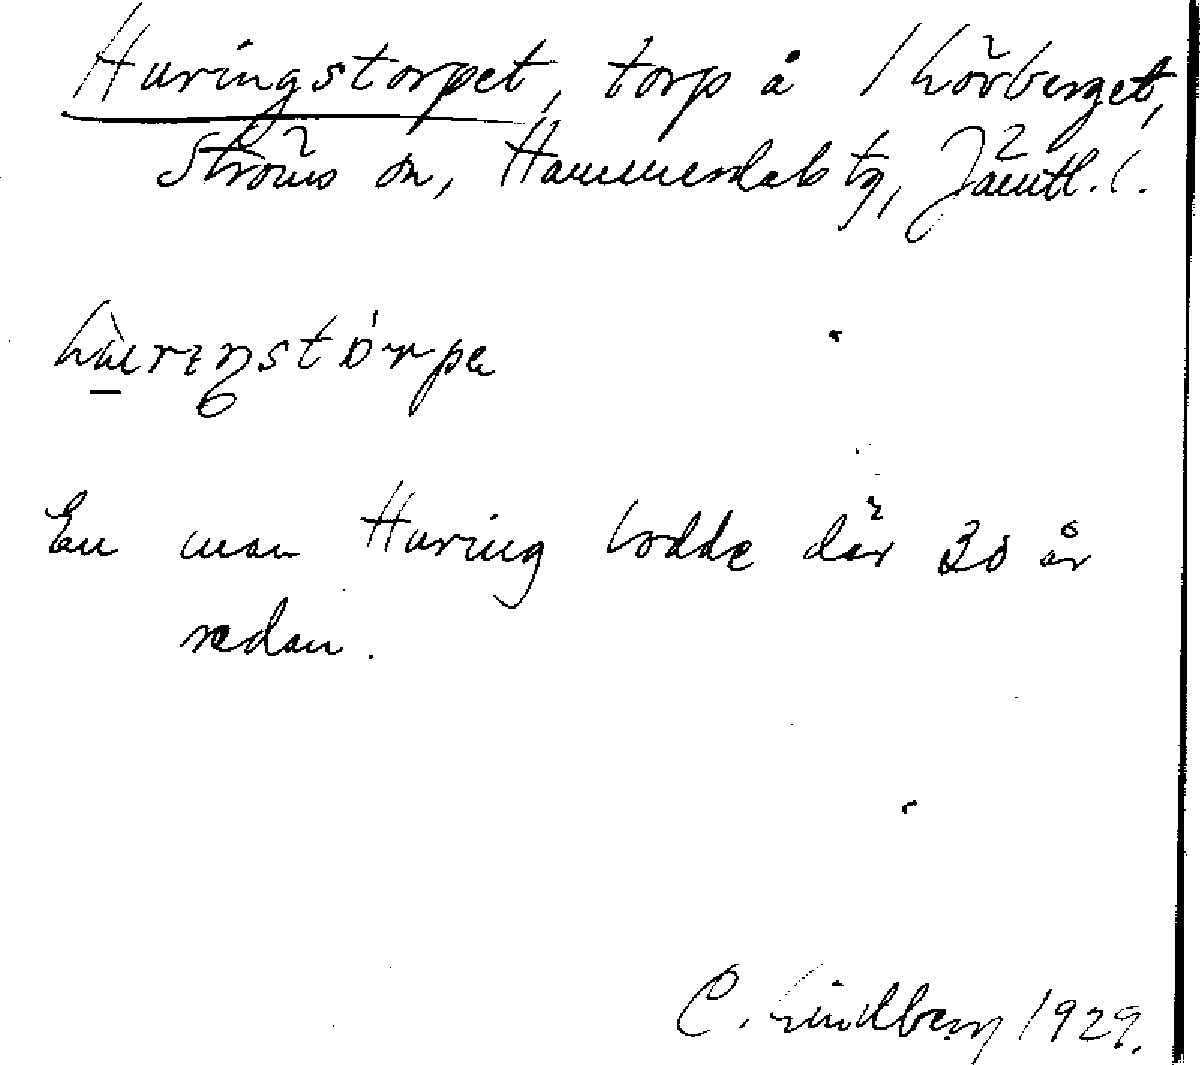 Huringstorpet, torp å Lhörberget,
Ströms sn, Hammerdals tg, Jämtl. l.
En man Huring bodde där 30 år
sedan.
C. Lindberg 1929.